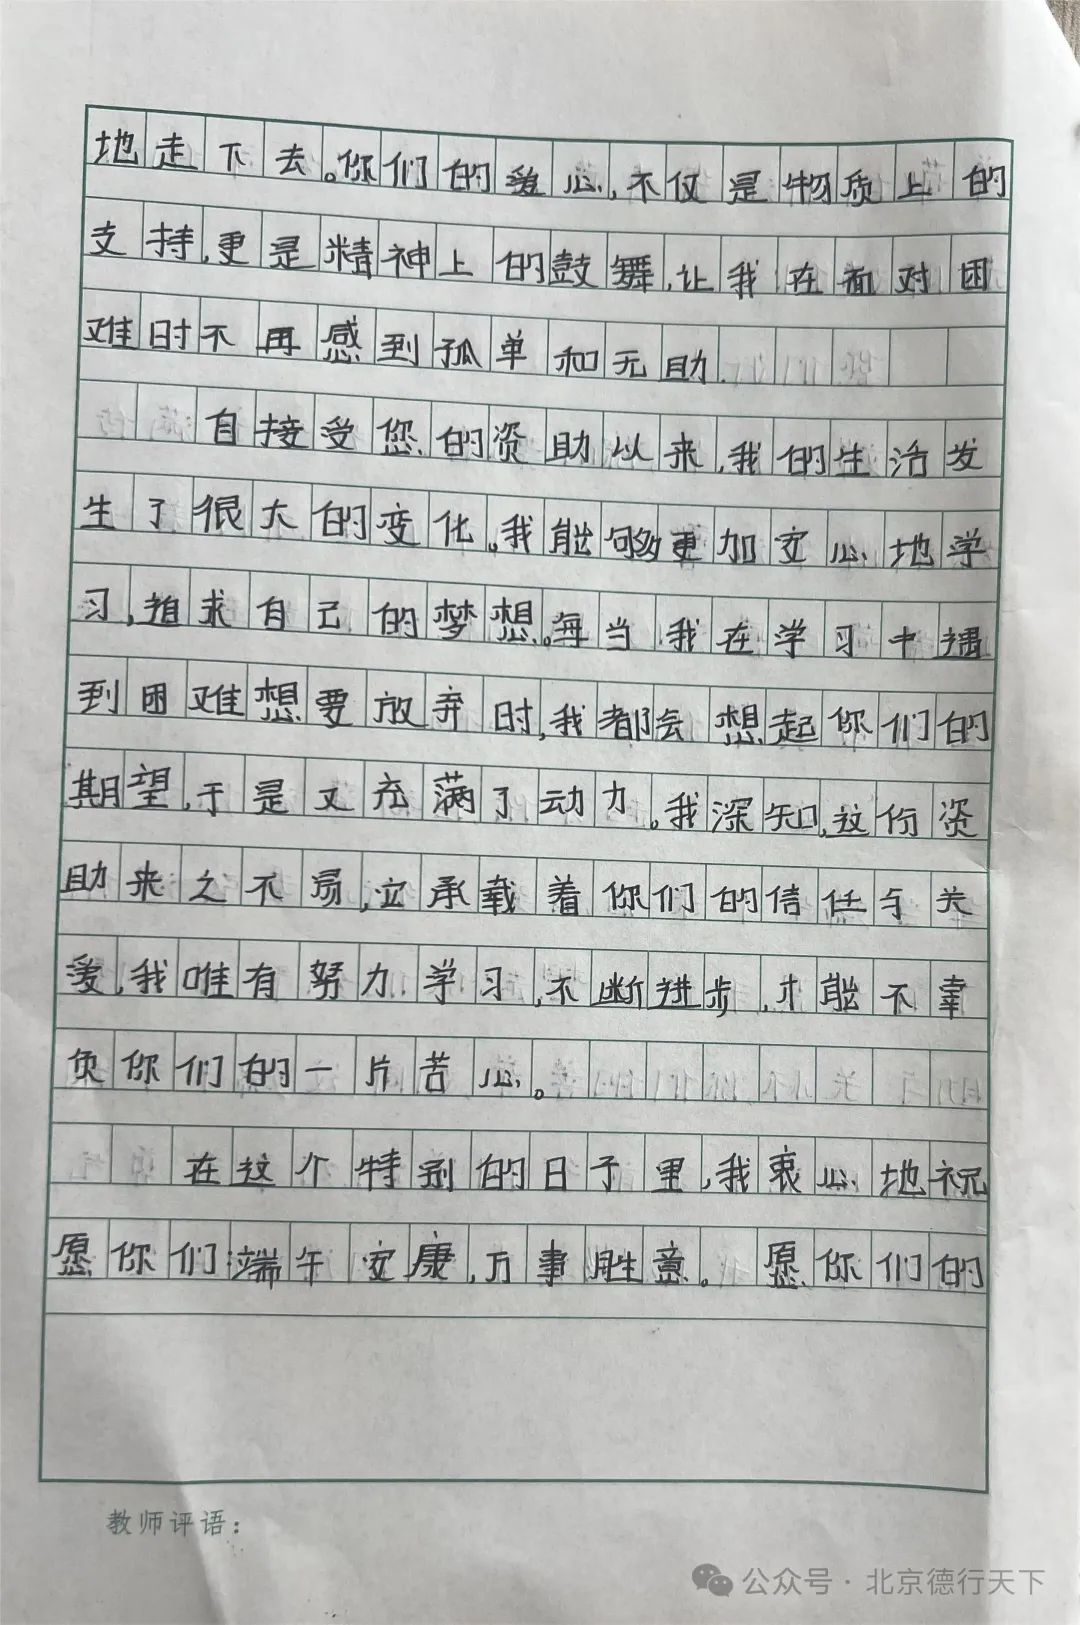 地走下去。你们的爱心,不仅是物质上的
支持,更是精神上的鼓舞,让我在面对困
难时不再感到孤单和无助.
自接受您的资助以来,我的生活发
生了很大的变化。我能够更加安心地学
习,追求自己的梦想。每当我在学习中遇
到困难想要放弃时,我都会想起你们的
期望,于是又充满了动力。我深知,这份资
助来之不易,它承载着你们的信任与关
爱,我唯有努力学习,不断进步,才能不辜
负你们的一片苦心。
在这个特别的日子里,我衷心地祝
愿你们端午安康,万事胜意。愿你们的
教师评语：
公众号·北京德行天下